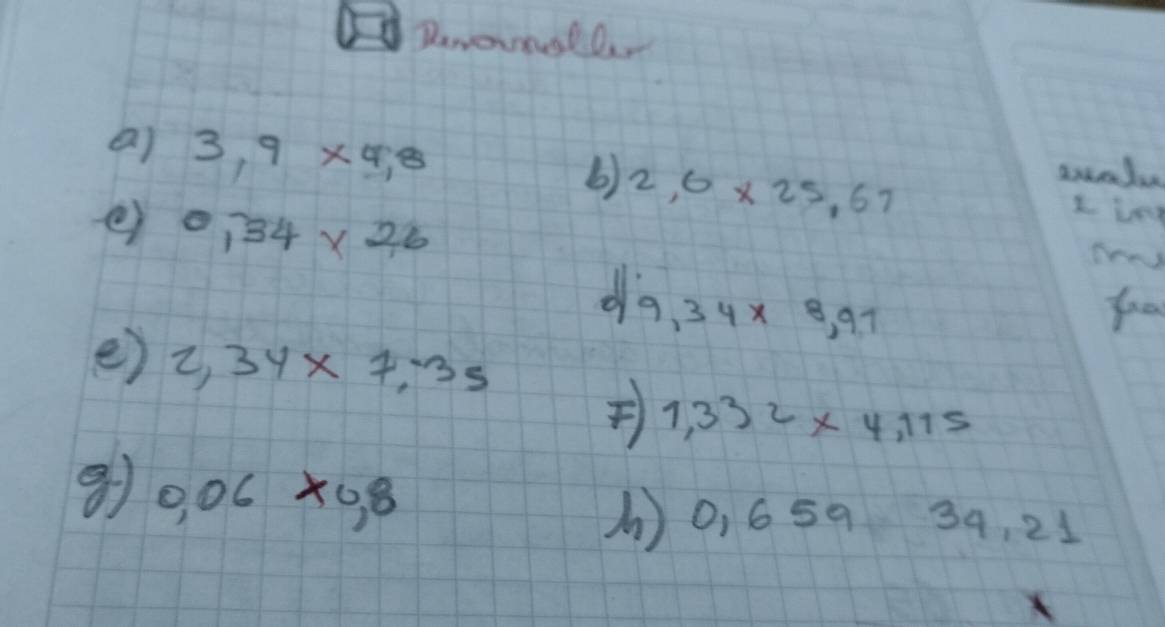 Desarrollar
a) 3,9 × 4,8
b) 2,6 × 25,67
c) 0,34 × 2,6
d) 9,34 × 8,91
e) 2,34 × 7,35
F) 1,332 × 4,115
g) 0,06 × 0,8
h) 0,659 39,21
×